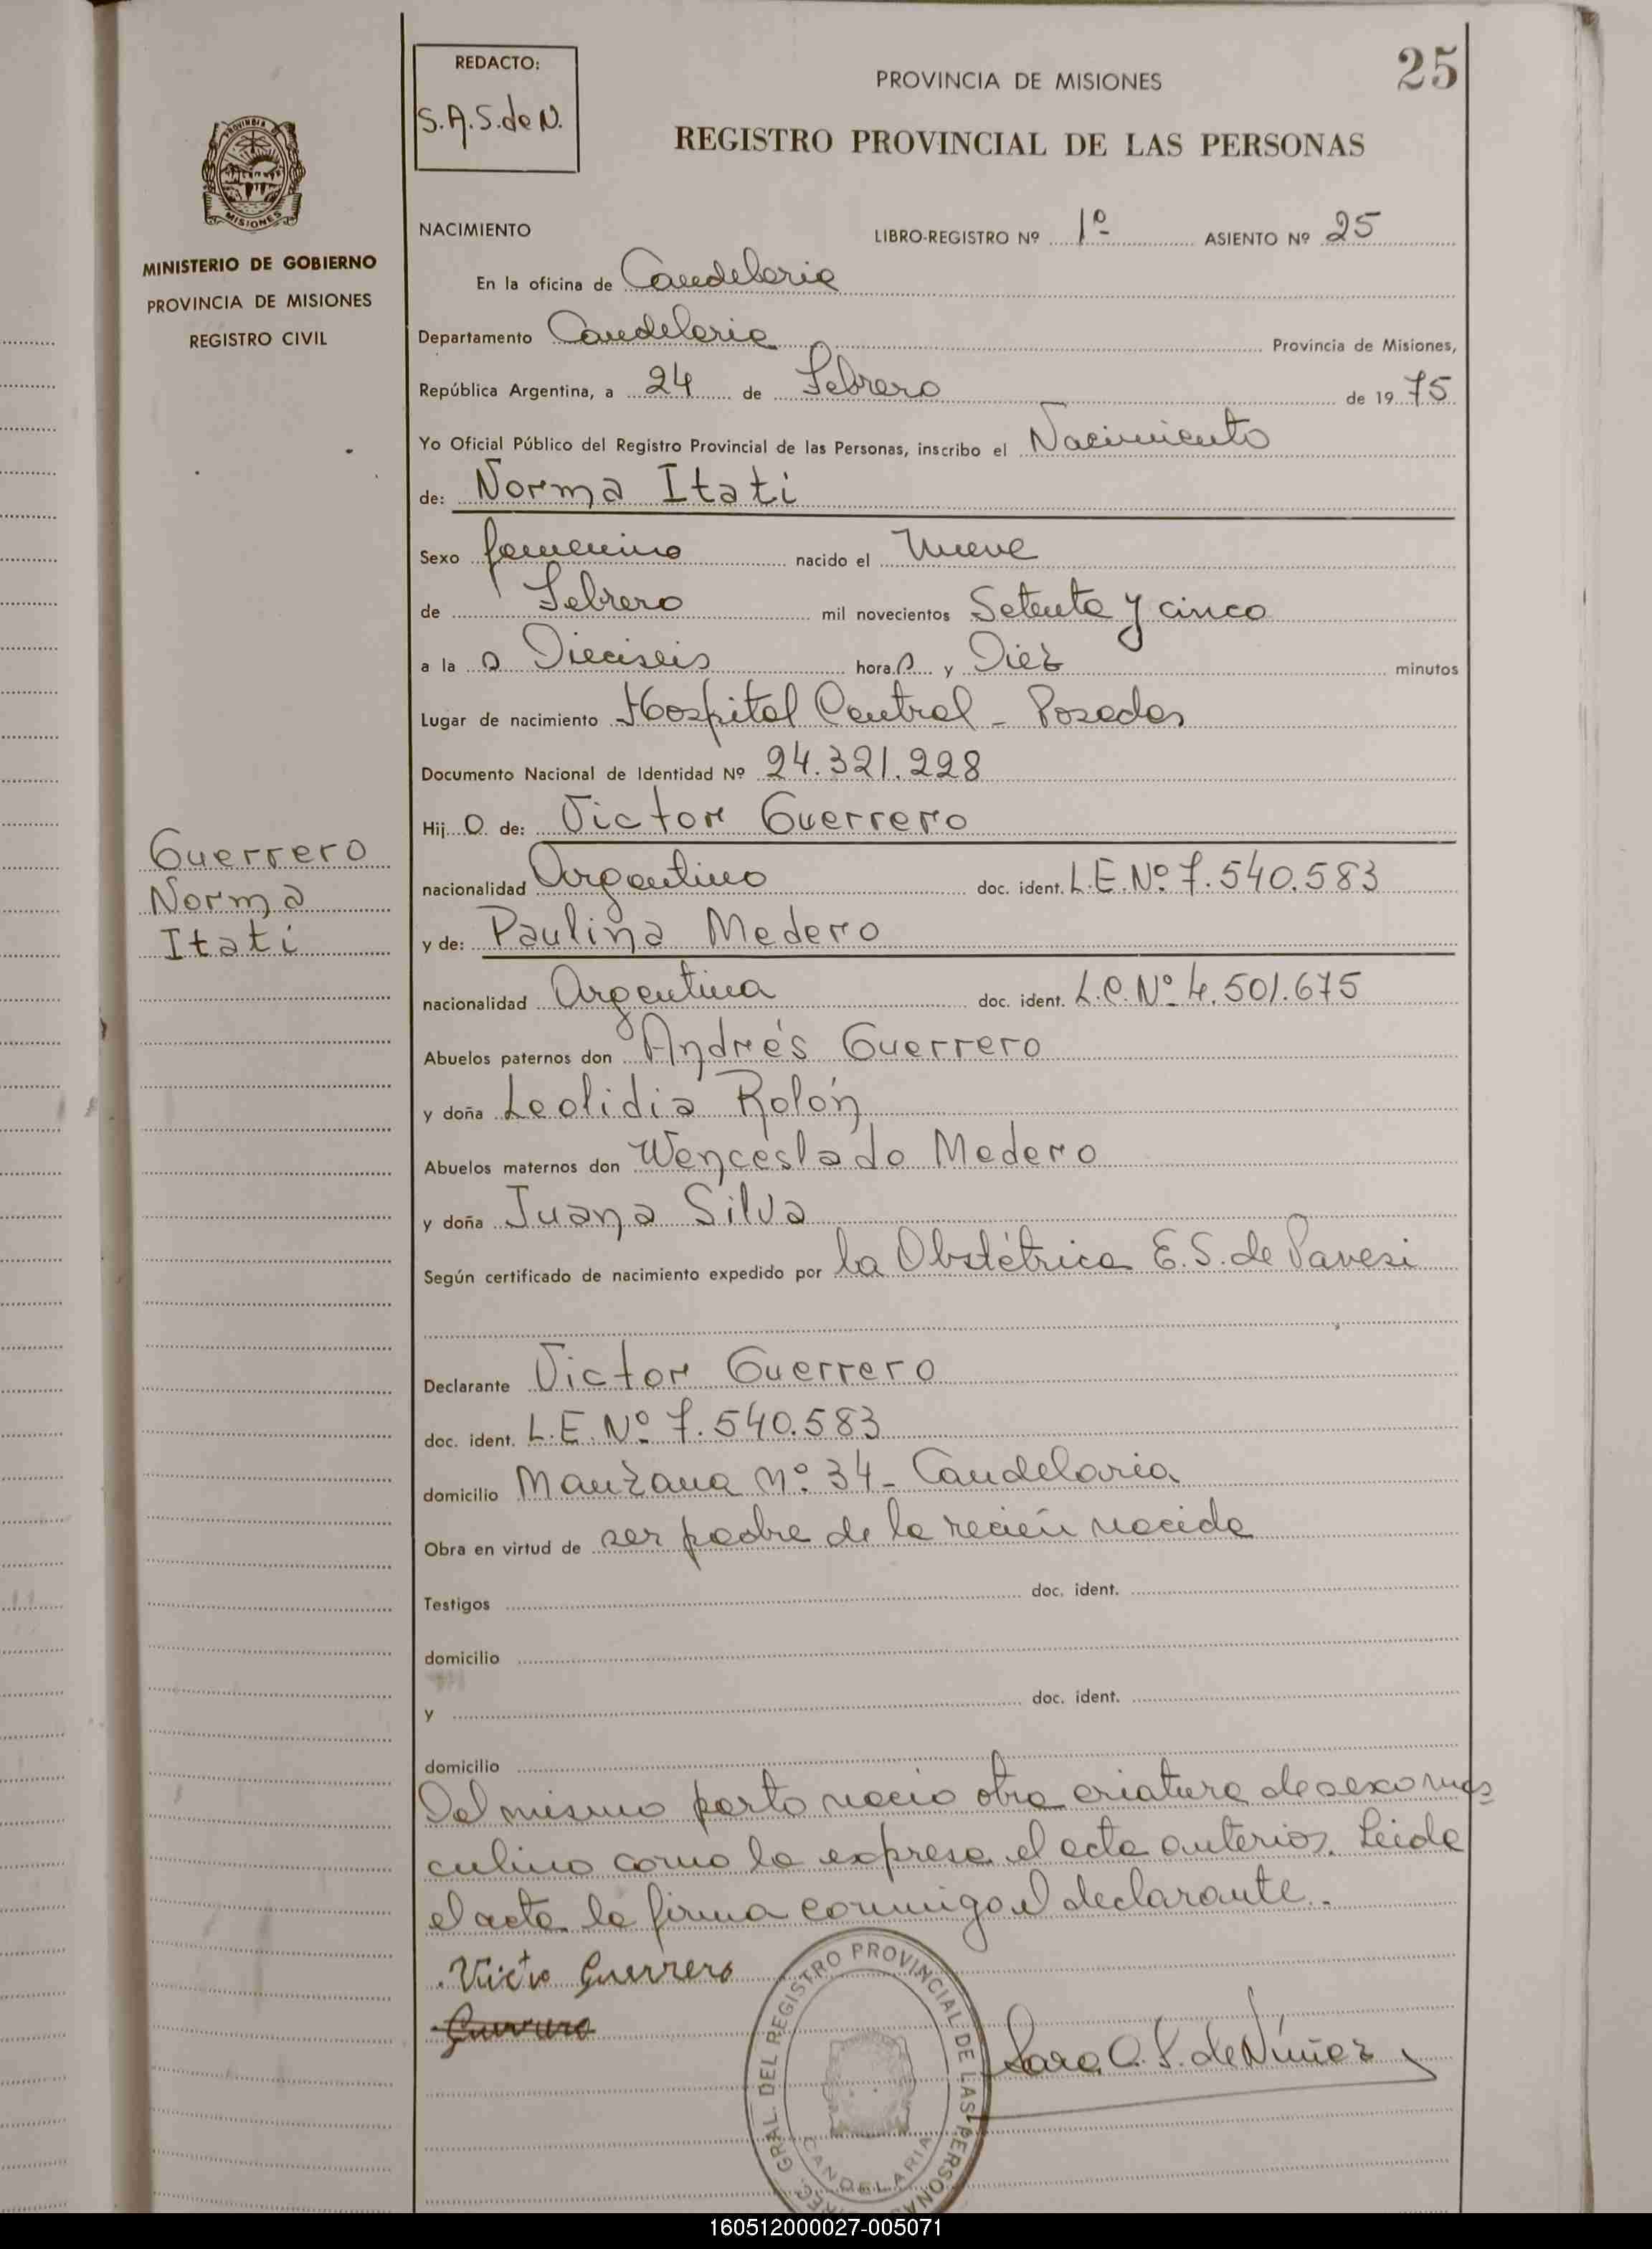 REDACTO:
S.A.S. de N.
PROVINCIA DE MISIONES
25
REGISTRO PROVINCIAL DE LAS PERSONAS
PROVINCIA DE
MISIONES
MINISTERIO DE GOBIERNO
PROVINCIA DE MISIONES
REGISTRO CIVIL
NACIMIENTO
LIBRO-REGISTRO Nº 1º ASIENTO Nº 25
En la oficina de Candelaria
Departamento Candelaria Provincia de Misiones,
República Argentina, a 24 de Febrero de 1975
Yo Oficial Público del Registro Provincial de las Personas, inscribo el Nacimiento
de: Norma Itatí
Sexo femenino nacido el Nueve
de Febrero mil novecientos Setenta y cinco
a la s Dieciseis hora s y Diez minutos
Lugar de nacimiento Hospital Central - Posadas
Documento Nacional de Identidad Nº 24.321.228
Hij a de: Victor Guerrero
Guerrero
Norma
Itatí
nacionalidad Argentino doc. ident. L.E. Nº 7.540.583
y de: Paulina Medero
nacionalidad Argentina doc. ident. L.C. Nº 4.501.675
Abuelos paternos don Andrés Guerrero
y doña Leolidia Rolón
Abuelos maternos don Wenceslado Medero
y doña Juana Silva
Según certificado de nacimiento expedido por la Obstétrica E.S. de Pavesi
Declarante Victor Guerrero
doc. ident. L.E. Nº 7.540.583
domicilio Manzana Nº 34 - Candelaria
Obra en virtud de ser padre de la recién nacida
Testigos doc. ident.
domicilio
y doc. ident.
domicilio
Del mismo parto nació otra criatura de sexo mas
culino como lo expresa el acta anterior. Leida
el acta la firma conmigo el declarante.-
Victo Guerrero
Guerrero
Sara A. S. de Núñez
GRAL. DEL REGISTRO PROVINCIAL DE LAS PERSONAS
CANDELARIA
160512000027-005071